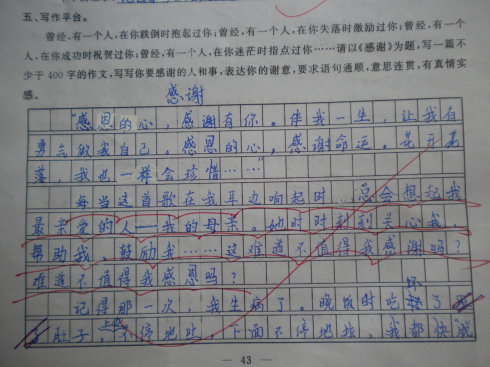 五、写作平台。
曾经,有一个人,在你跌倒时抱起过你;曾经,有一个人,在你失落时激励过你;曾经,有一个
人,在你成功时祝贺过你;曾经,有一个人,在你迷茫时指点过你……请以《感谢》为题,写一篇不
少于400字的作文,写写你要感谢的人和事,表达你的谢意,要求语句通顺,意思连贯,有真情实
感。
感谢
“感恩的心,感谢有你。伴我一生,让我有
勇气做我自己。感恩的心,感谢命运。花开花
落,我也一样会珍惜……”
每当这首歌在我耳边响起时,总会想起我
最亲爱的人—我的母亲。她时时刻刻关心我、
帮助我、鼓励我……这难道不值得我感谢吗?
难道不值得我感恩吗?
记得那一次,我生病了。晚饭时吃坏了
肚子,上面不停地吐,下面不停地拉,我都快
— 43 —